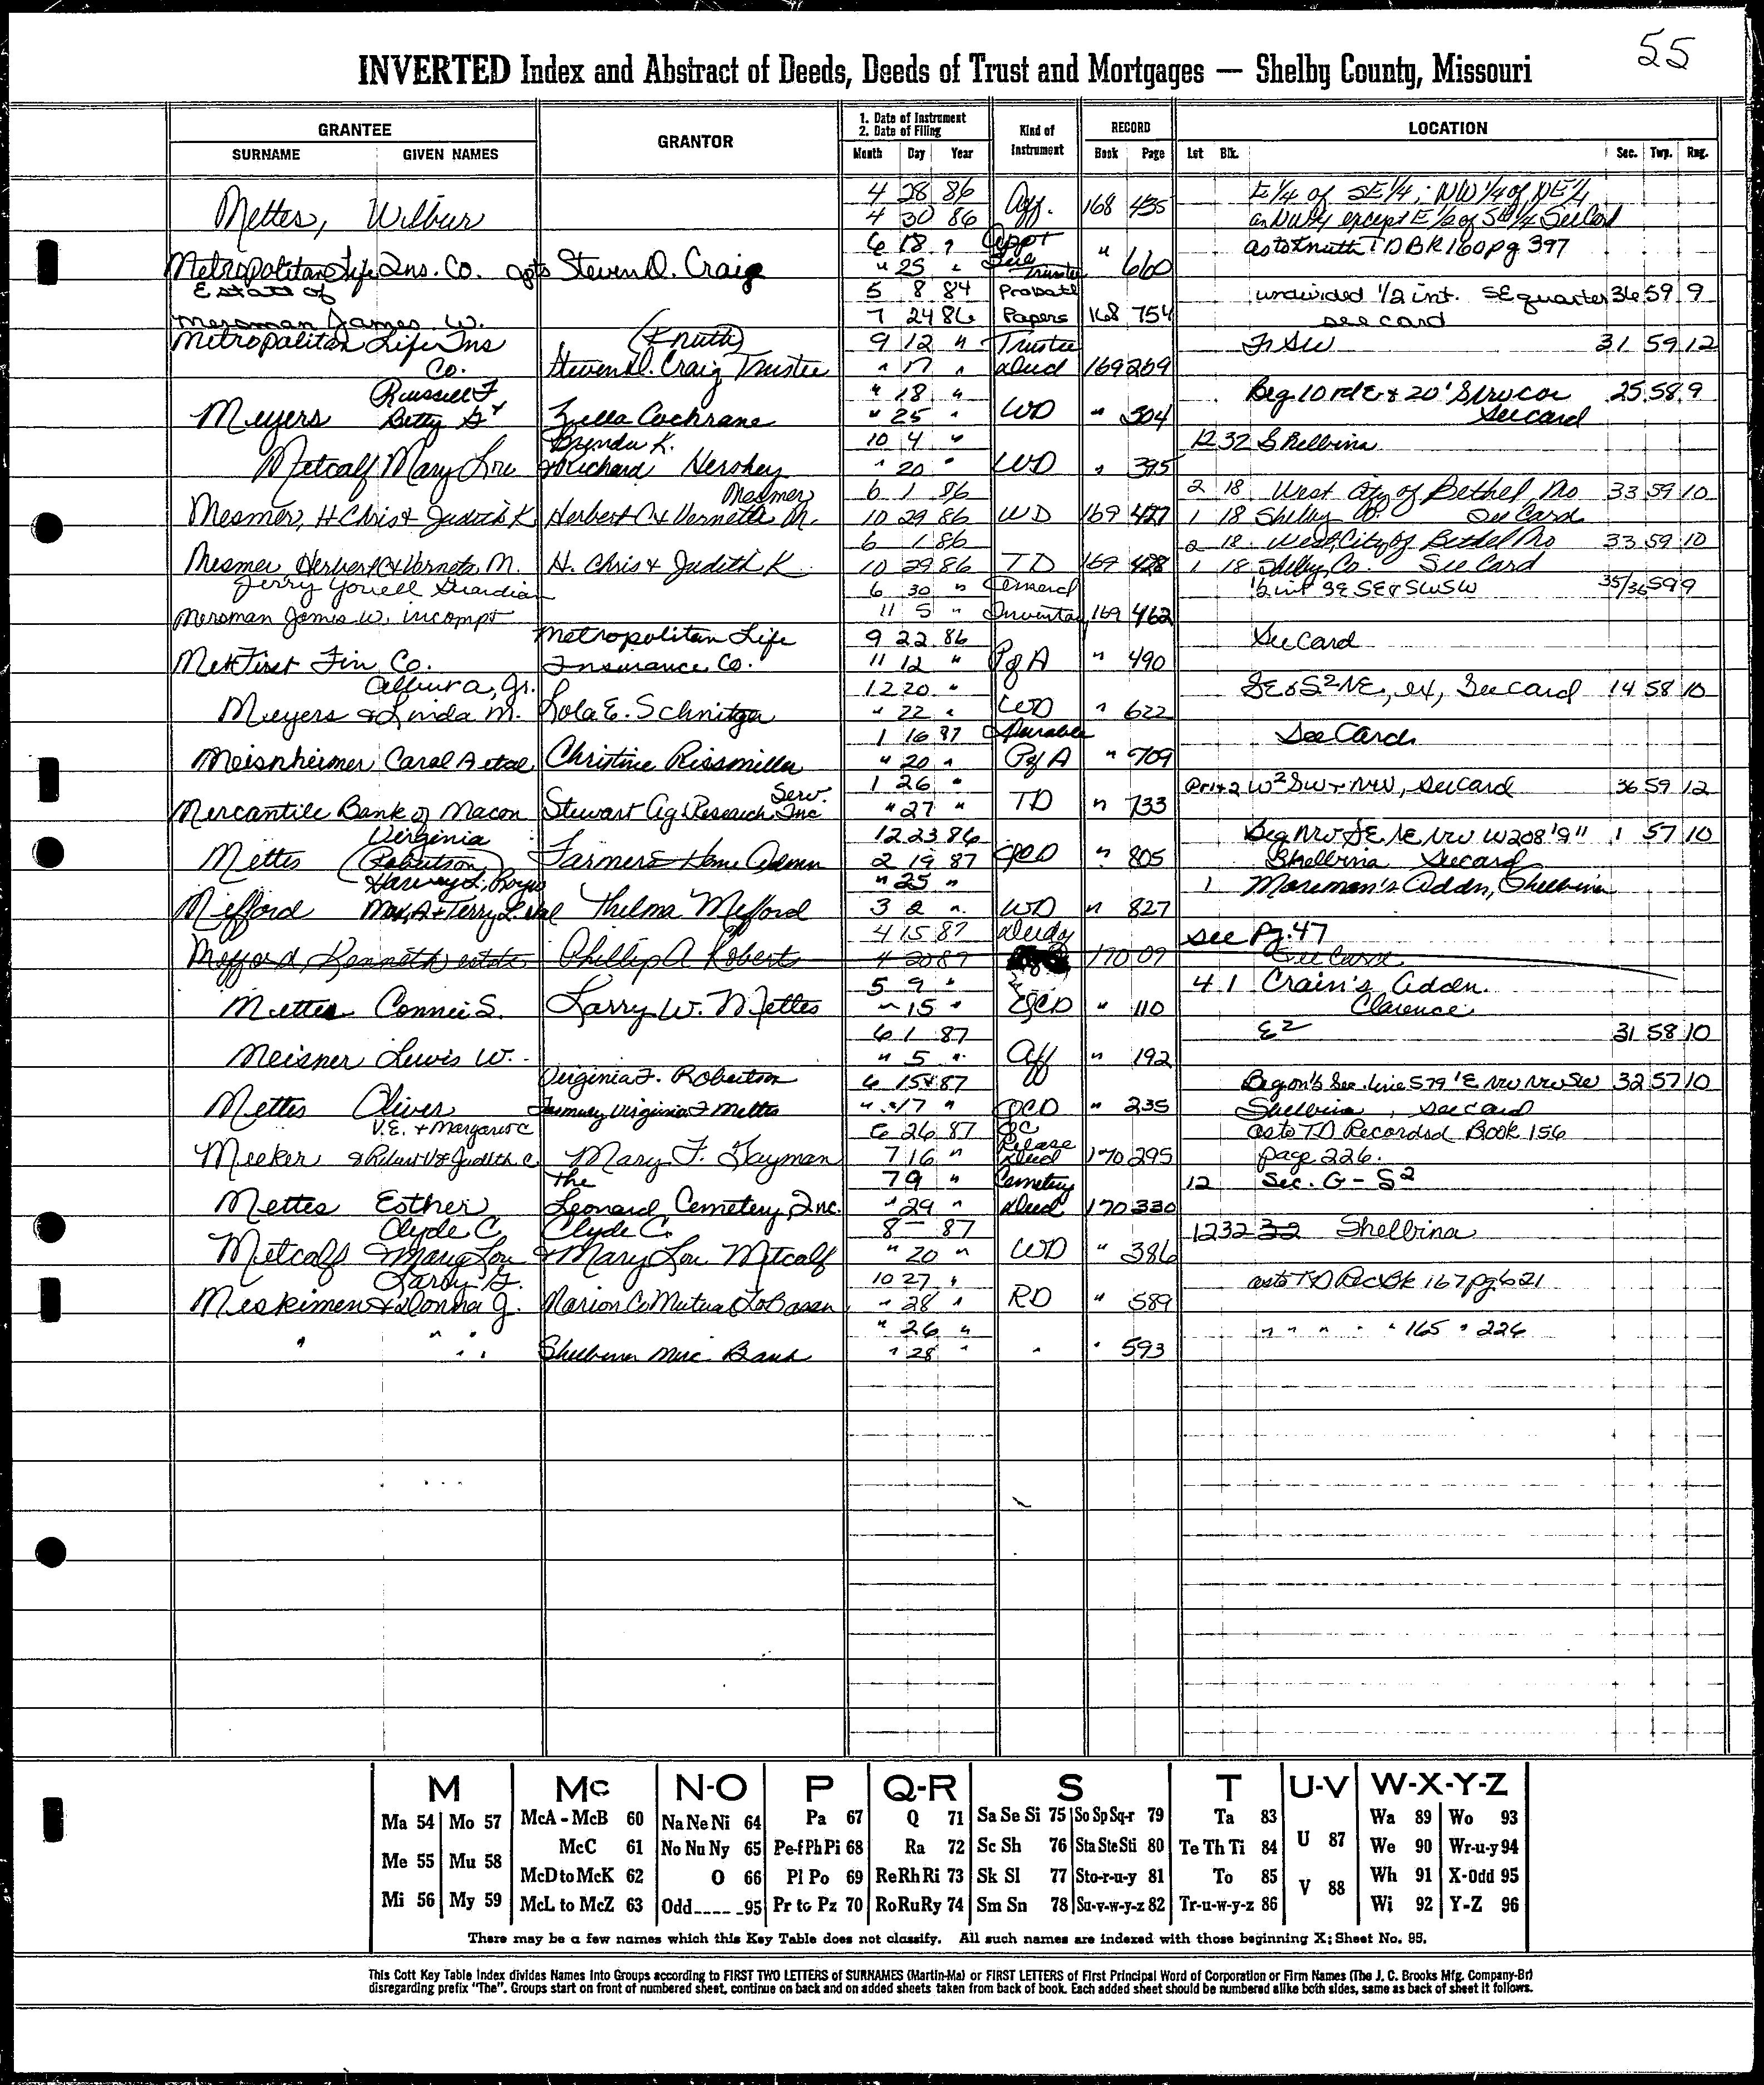 55
INVERTED Index and Abstract of Deeds, Deeds of Trust and Mortgages — Shelby County, Missouri
GRANTEE GRANTOR 1. Date of Instrument 2. Date of Filing Kind of Instrument RECORD LOCATION
SURNAME GIVEN NAMES Month Day Year Book Page Lot Blk. Sec. Twp. Rng.
4 28 86 E 1/4 of SE 1/4; NW 1/4 of NE 1/4
Mettes, Wilbur 4 30 86 Aff. 168 435 except E 1/2 of
6 18 " Appt as to Knuth TD BK 160 pg 397
Metropolitan Life Ins. Co. apts Steven D. Craig " 25 " Trustee " 660
Estate of 5 8 84 Probate undivided 1/2 int. SE quarter 36 59 9
Mersman James W. 7 24 86 Papers 168 754 see card
Metropolitan Life Ins (Knuth) 9 12 " Trustee Fr SW 31 59 12
Co. Steven D. Craig Trustee " 17 " Deed 169 269
Russell F " 18 " Beg 10 rd E & 20' S 25 58 9
Meyers Betty G & Zella Cochrane " 25 " WD " 304 See card
Brenda K. 10 4 " 12 32 Shelbina
Metcalf Mary Lou & Richard Hershey " 20 " WD " 395
Mesmer 6 1 86 2 18 West City of Bethel, Mo 33 59 10
Mesmer, H Chris & Judith K Herbert C & Verneta M. 10 29 86 WD 169 427 1 18 Shelby Co. See Card
6 1 86 2 18 West, City of Bethel Mo 33 59 10
Mesmer Herbert C & Verneta M. H. Chris & Judith K 10 29 86 TD 169 428 1 18 Shelby Co. See Card
Jerry Yowell Guardian 6 30 " 1/2 int SE SE & SWSW 35/36 59 9
Mersman James W. incompt 11 5 " Inventory 169 462
Metropolitan Life 9 22 86 See Card
MetFirst Fin Co. Insurance Co. 11 12 " P of A " 490
Albert A, Jr. 12 20 " SE & S2 NE, ex, See card 14 58 10
Meyers & Linda M. Lola E. Schnitger " 22 " WD " 622
1 16 87 Durable See Card
Meisnheimer Carol A etal Christine Rissmiller " 20 " P of A " 709
Serv. 1 26 " Pr 1 & 2 W2 SW & NW, See card 36 59 12
Mercantile Bank of Macon Stewart Ag Research Inc " 27 " TD " 733
Virginia 12 23 86 Beg NW SE NE NW W 208'9" 1 57 10
Mettes (Robertson) Farmers Home Admn 2 19 87 QCD " 805 Shelbina See card
Harvey L, " 25 " 1 Moreman's Addn, Shelbina
Mefford Max A & Terry L. etal Thelma Mefford 3 2 " WD " 827
4 15 87 Deed of see Pg. 47
Mefford, Kenneth estate Phillip A Roberts 4 20 87 170 07 See Card
5 9 " 4 1 Crain's Addn.
Mettes Connie S. Larry W. Mettes " 15 " QCD " 110 Clarence
6 1 87 E2 31 58 10
Meisner Lewis W. " 5 " Aff " 192
Virginia F. Robertson 6 15 87 Beg on S Sec. line 579' E NW NW SW 32 57 10
Mettes Oliver Formerly Virginia F Mettes " 17 " QCD " 235 Shelbina, See card
V.E. & Margaret C 6 26 87 QC as to TD Recorded Book 156
Meeker & Robert V & Judith C Mary F. Gayman 7 16 " Release Deed 170 295 page 226.
The 7 9 " Cemetery 12 Sec. G - S2
Mettes Esther Leonard Cemetery, Inc. " 29 " Deed 170 330
Clyde C. Clyde C. 8 — 87 12 32 32 Shelbina
Metcalf & Mary Lou & Mary Lou Metcalf " 20 " WD " 386
Larry G. 10 27 " as to TD Rec Bk 167 pg 621
Meskimen & Donna J. Marion Co Mutual Lo Bassn " 28 " RD " 589
" 26 " " " " " " 165 " 226
" " " Shelbina Merc Bank " 28 " " " 593
M Mc N-O P Q-R S T U-V W-X-Y-Z
Ma 54 Mo 57 McA - McB 60 Na Ne Ni 64 Pa 67 Q 71 Sa Se Si 75 So Sp Sq-r 79 Ta 83 U 87 Wa 89 Wo 93
McC 61 No Nu Ny 65 Pe-f Ph Pi 68 Ra 72 Sc Sh 76 Sta Ste Sti 80 Te Th Ti 84 We 90 Wr-u-y 94
Me 55 Mu 58 McD to McK 62 O 66 Pl Po 69 Re Rh Ri 73 Sk Sl 77 Sto-r-u-y 81 To 85 V 88 Wh 91 X-Odd 95
Mi 56 My 59 McL to McZ 63 Odd---- -95 Pr to Pz 70 Ro Ru Ry 74 Sm Sn 78 Su-v-w-y-z 82 Tr-u-w-y-z 86 Wi 92 Y-Z 96
There may be a few names which this Key Table does not classify. All such names are indexed with those beginning X; Sheet No. 95.
This Cott Key Table Index divides Names Into Groups according to FIRST TWO LETTERS of SURNAMES (Martin-Ma) or FIRST LETTERS of First Principal Word of Corporation or Firm Names (The J. C. Brooks Mfg. Company-Br)
disregarding prefix "The". Groups start on front of numbered sheet, continue on back and on added sheets taken from back of book. Each added sheet should be numbered alike both sides, same as back of sheet it follows.